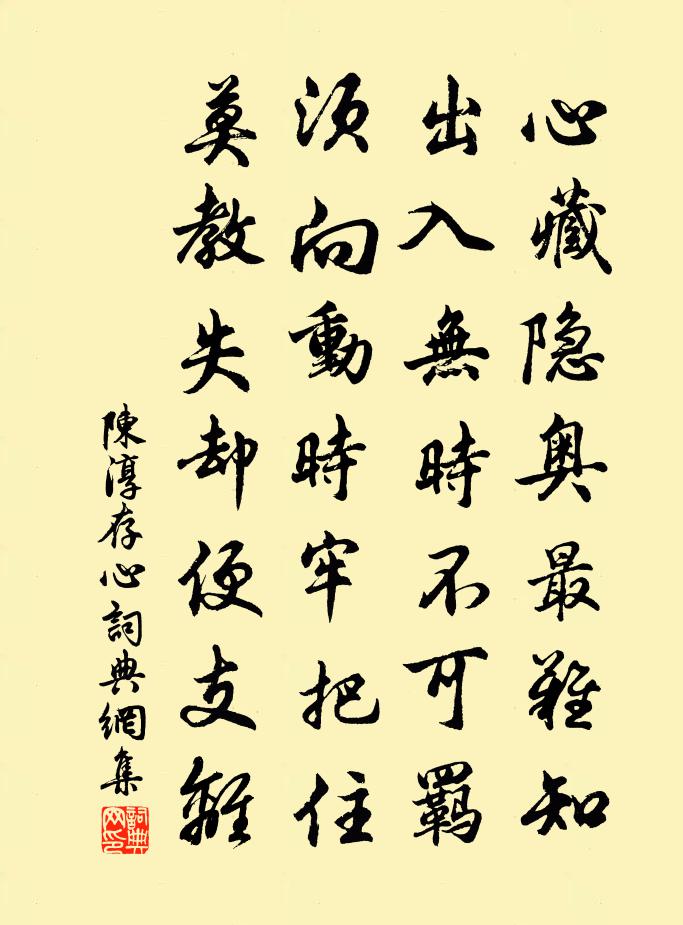 心藏隐奥最難知
出入無時不可羈
須向動時牢把住
莫教失却便支離
陳淳存心詞典網集
詞典网印